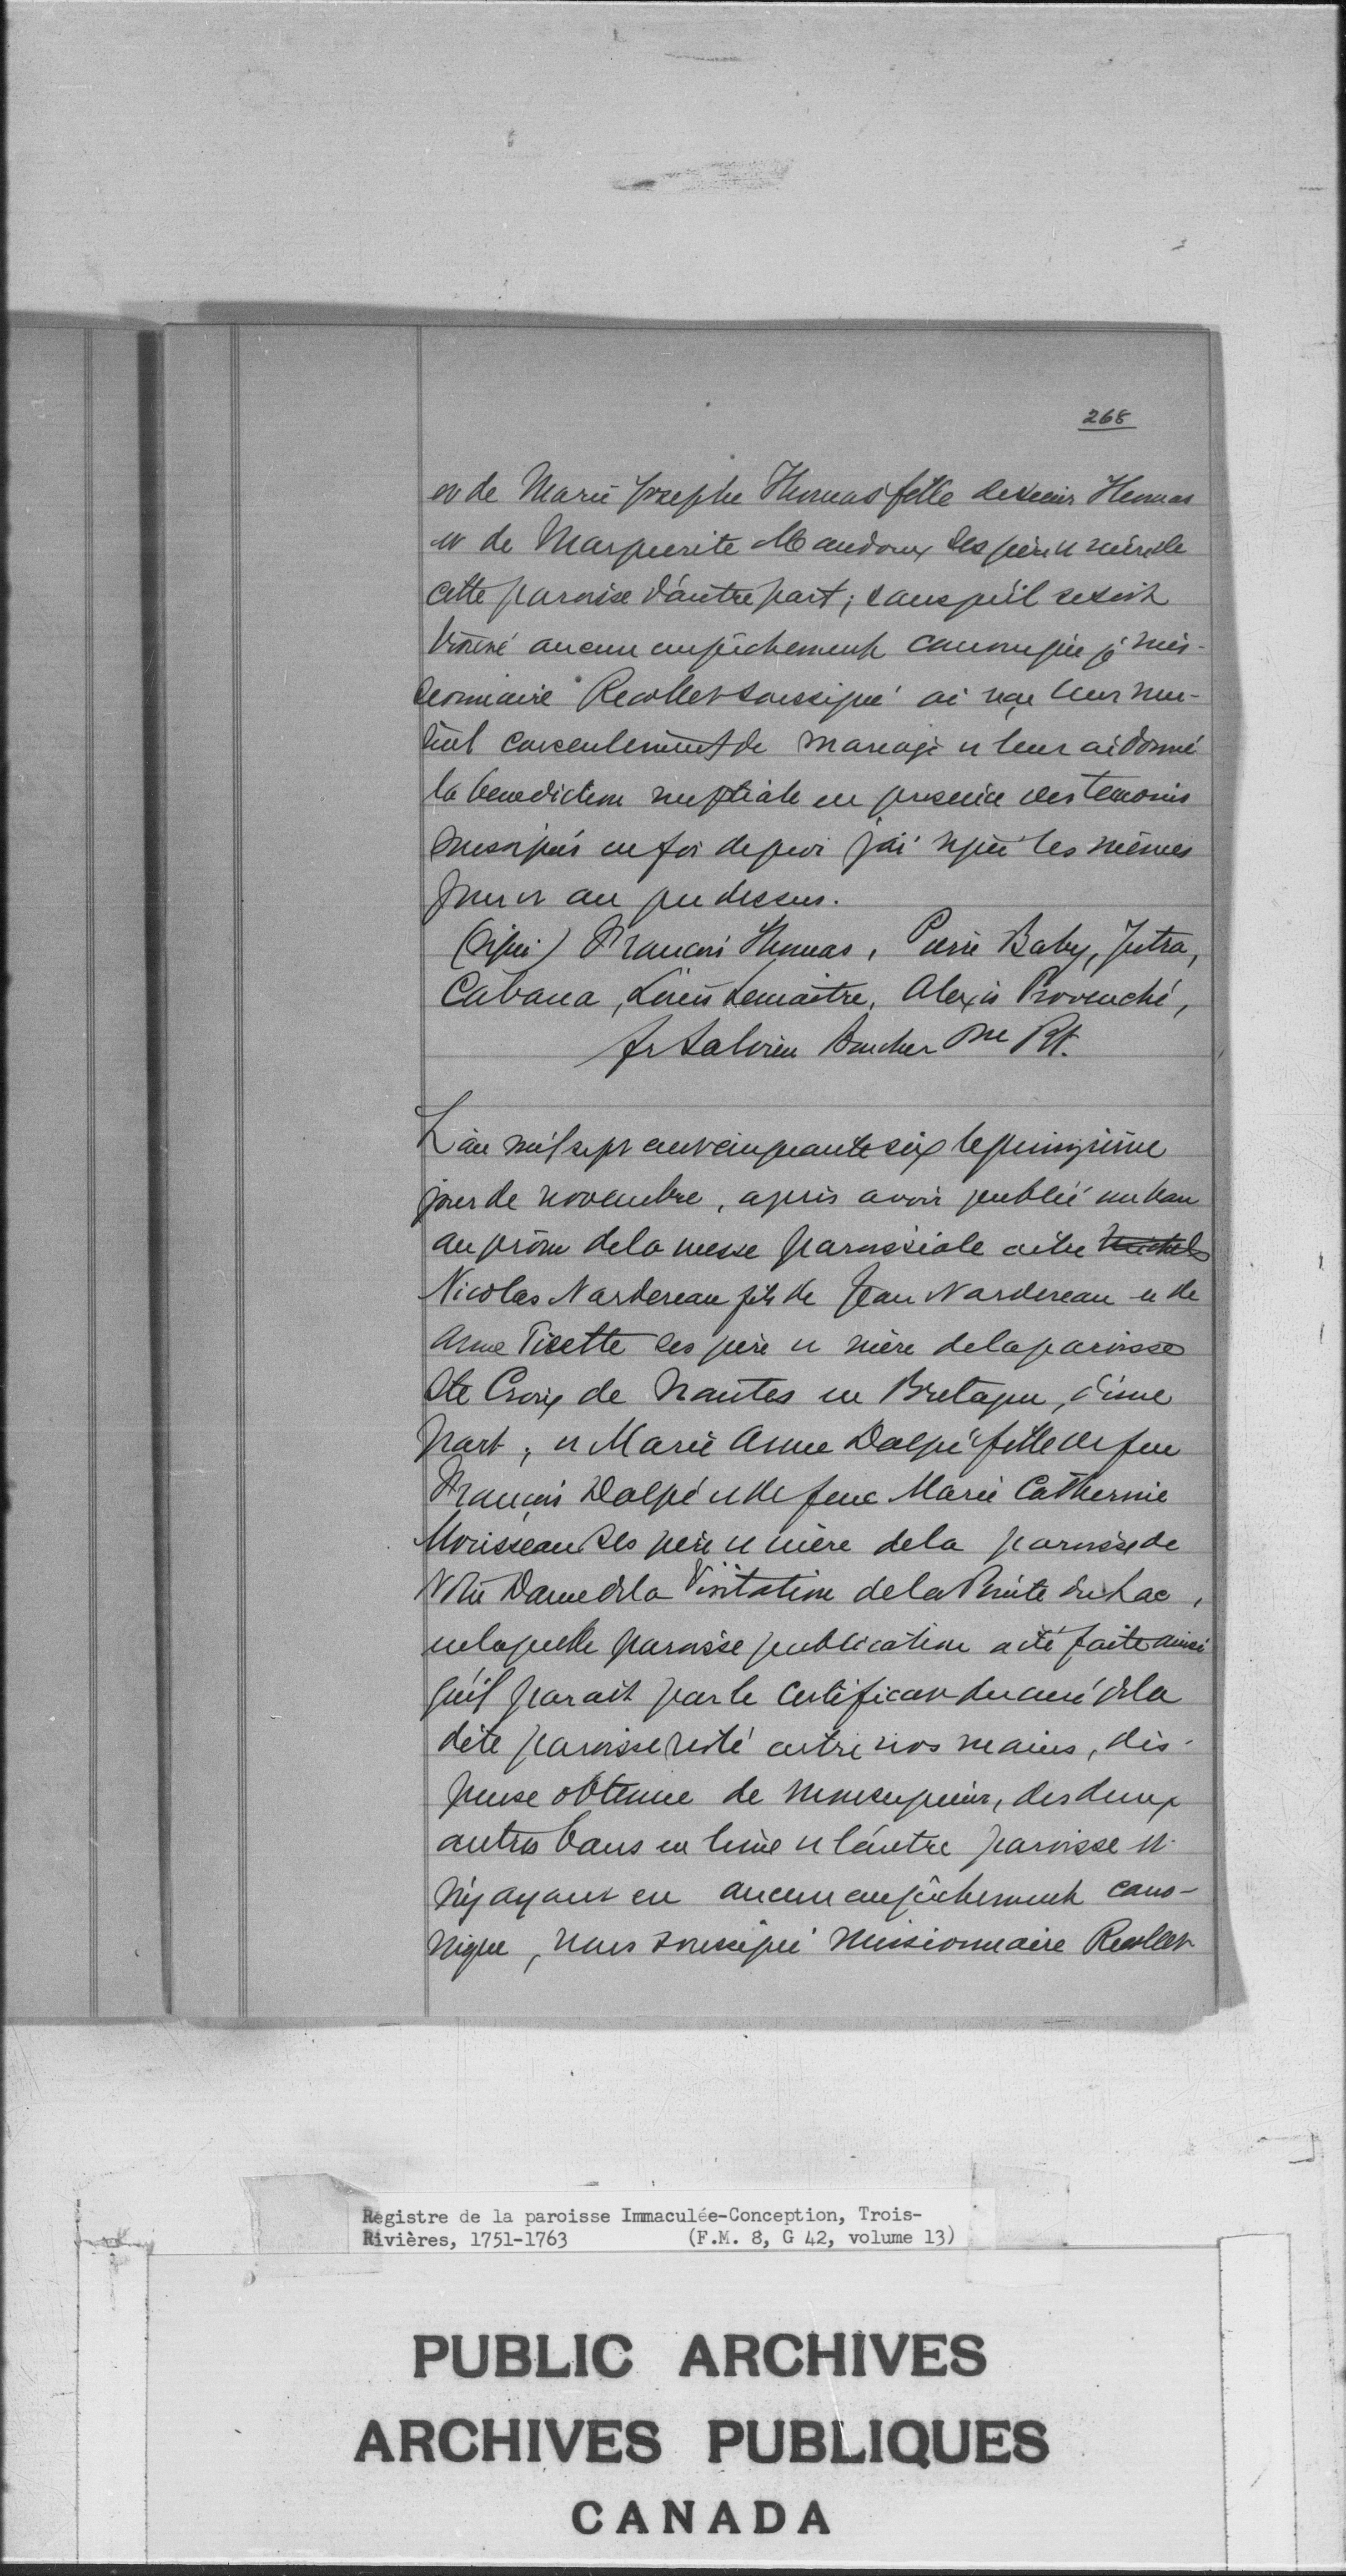 268
et de Marie Josephe Thomas fille de sieur Thomas
et de Marguerite Maudoux ses père et mère de
cette paroisse d'autre part; sans qu'il se soit
trouvé aucun empêchement canonique je mis-
sionnaire Recollet soussigné ai reçu leur mu-
tuel consentement de mariage et leur ai donné
la benediction nuptiale en presence des temoins
soussignés en foi de quoi j'ai signé les mêmes
jour et an que dessus.
(Signé) François Thomas, Pierre Baby, Jutra,
Cabana, Louis Lemaitre, Alexis Provenché,
fr Salvien Boucher Me Rt.
L'an mil sept cent cinquante six le quinzième
jour de novembre, après avoir publié un ban
au prône de la messe paroissiale entre Michel
Nicolas Nardereau fils de Jean Nardereau et de
Anne Ticette ses père et mère de la paroisse
Ste Croix de Nantes en Bretagne, d'une
part, et Marie Anne Dalpé fille de feu
François Dalpé et de feue Marie Catherine
Moisseau ses père et mère de la paroisse de
Notre Dame de la Visitation de la Pointe du Lac,
en laquelle paroisse publication a été faite ainsi
qu'il parait par le certificat du curé de la
dite paroisse resté entre nos mains, dis-
pense obtenue de Monseigneur, des deux
autres bans en l'une et l'autre paroisse et
n'y ayant eu aucun empêchement cano-
nique, nous soussigné missionnaire Recollet
Registre de la paroisse Immaculée-Conception, Trois-
Rivières, 1751-1763 (F.M. 8, G 42, volume 13)
PUBLIC ARCHIVES
ARCHIVES PUBLIQUES
CANADA